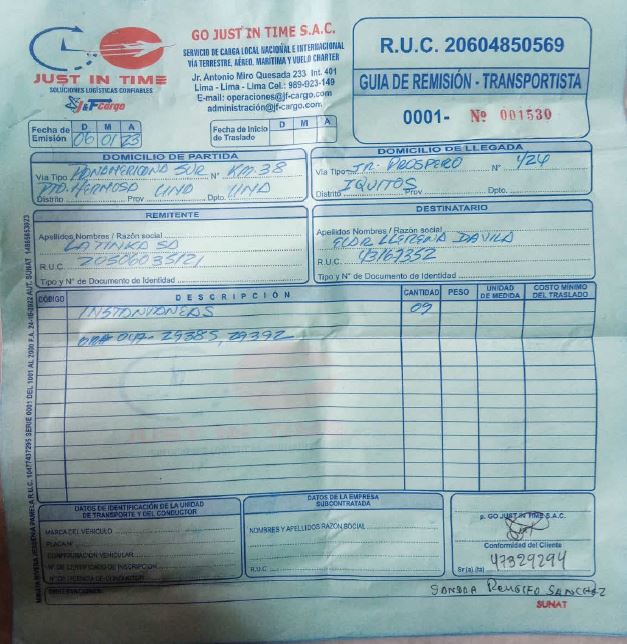 GO JUST IN TIME S.A.C.
SERVICIO DE CARGA LOCAL NACIONAL E INTERNACIONAL
VÍA TERRESTRE, AÉREO, MARITIMA Y VUELO CHARTER
Jr. Antonio Miro Quesada 233 Int. 401
Lima - Lima - Lima Cel.: 989-923-149
E-mail: operaciones@jf-cargo.com
administración@jf-cargo.com
JUST IN TIME
SOLUCIONES LOGISTICAS CONFIABLES
J&F cargo
R.U.C. 20604850569
GUIA DE REMISIÓN - TRANSPORTISTA
0001- Nº 001530
Fecha de Emisión D M A 06 01 23
Fecha de Inicio de Traslado D M A
DOMICILIO DE PARTIDA
Vía Tipo PANAMERICANA SUR N° KM-38
PTO. HERMOSA LIMA LIMA
Distrito Prov Dpto.
DOMICILIO DE LLEGADA
Vía Tipo JR. PROSPERO N° 424
Distrito IQUITOS Prov Dpto.
REMITENTE
Apellidos Nombres / Razón social
LA TINKA SA
R.U.C. 20506035121
Tipo y N° de Documento de Identidad
DESTINATARIO
Apellidos Nombres / Razón social
DAVILA
R.U.C. 43167352
Tipo y N° de Documento de Identidad
CÓDIGO DESCRIPCIÓN CANTIDAD PESO UNIDAD DE MEDIDA COSTO MÍNIMO DEL TRASLADO
INSTANTANEAS 09
29385, 29392
DATOS DE IDENTIFICACIÓN DE LA UNIDAD DE TRANSPORTE Y DEL CONDUCTOR
MARCA DEL VEHICULO
PLACA N°
CONFIGURACION VEHICULAR
N° DE CERTIFICADO DE INSCRIPCION
N° DE LICENCIA DE CONDUCTOR
OBSERVACIONES
DATOS DE LA EMPRESA SUBCONTRATADA
NOMBRES Y APELLIDOS RAZON SOCIAL
R.U.C
p. GO JUST IN TIME S.A.C.
Conformidad del Cliente
47329294
Sr (a) (ta)
SANDRA RENGIFO SANCHEZ
SUNAT